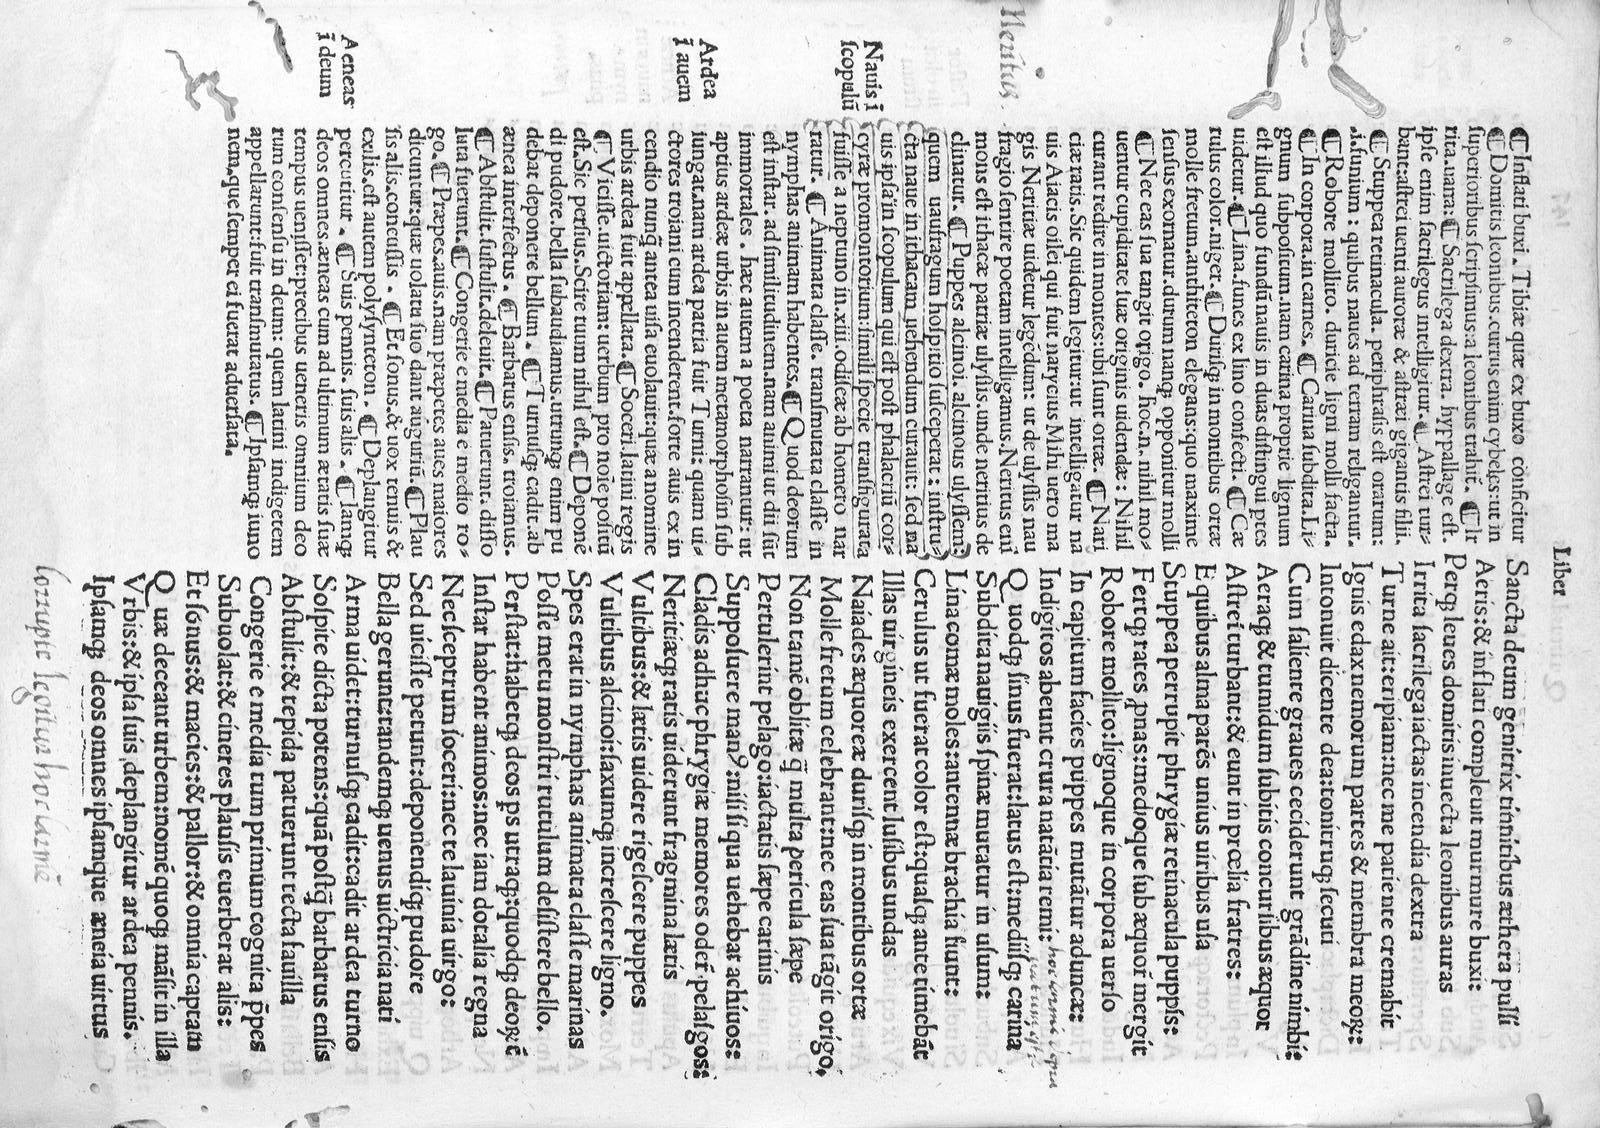 Liber
Sancta deum genitrix tinnitibus æthera pulsi
Aeris:& inflati compleuit murmure buxi:
Perq; leues domitis inuecta leonibus auras
Irrita sacrilega iactas incendia dextra
Turne ait:eripiam:nec me patiente cremabit
Ignis edax nemorum partes & membra meoꝝ:
Intonuit dicente dea:tonitruq; secuti
Cum saliente graues ceciderunt grādine nimbi:
Aeraq; & tumidum subitis concursibus æquor
Astrei turbant:& eunt in prœlia fratres:
Equibus alma parēs unius uiribus usa
Stuppea perrupit phrygiæ retinacula puppis:
Fertq; rates ꝓnas:medioque sub æquoř mergit
Robore mollito:lignoque in corpora uerso
In capitum facies puppes mutātur aduncæ:
Indigitos abeunt crura natātia remi:
Q uodq; sinus fuerat:latus est:mediisq; carina
Subdita nauigiis spinæ mutatur in usum:
Lina comæ moles:antennæ brachia fiunt:
Cerulus ut fuerat color est:quasq; ante timebāt
Illas uirgineis exercent lusibus undas
Naiades æquoreæ durisq; in montibus ortæ
Molle fretum celebrant:nec eas sua tāgit origo,
Non tamē oblitæ q̄ multa pericula sæpe
Pertulerint pelago:iactatis sæpe carinis
Supposuere manꝰ:nisi si qua uehebat achiuos:
Cladis adhuc phrygiæ memores oder̄ pelasgos:
Neritiæq; ratis uiderunt fragmina lætis
Vultibus:& lætis uidere rigescere puppes
Vultibus alcinoi:saxumq; increscere ligno.
Spes erat in nymphas animata classe marinas
Posse metu monstri rutulum desistere bello.
Perstat:habetq; deos ps utraq;:quodq; deoꝝ ē
Instar habent animos:nec iam dotalia regna
Nec sceptrum soceri:nec te lauinia uirgo:
Sed uicisse petunt:deponendiq; pudore
Bella gerunt:tandemq; uenus uictricia nati
Arma uidet:turnusq; cadit:cadit ardea turno
Sospite dicta potens:quā postq̄ barbarus ensis
Abstulit:& tepida patuerunt tecta fauilla
Congerie e media tum primum cognita p̄pes
Subuolat:& cineres plausis euerberat alis:
Et sonus:& macies:& pallor:& omnia captam
Q uæ deceant urbem:nomē quoq; māsit in illa
Vrbis:& ipsa suis deplangitur ardea pennis.
Ipsamq; deos omnes ipsamque æneia uirtus
¶ Inflati buxi. Tibiæ quæ ex buxo conficitur
¶ Domitis leonibus.currus enim cybeles:ut in
superioribus scripsimus:a leonibus trahit̄. ¶ Ir
rita.uana:¶ Sacrilega dextra. hyppallage est.
ipse enim sacrilegus intelligitur.¶ Astrei tur=
bant:astrei uenti auroræ & astræi gigantis filii.
¶ Stuppea retinacula. periphrasis est orarum:
.i.funium : quibus naues ad terram religantur.
¶ Robore mollito. duricie ligni molli facta.
¶ In corpora.in carnes. ¶ Carina subdita.Li=
gnum subpositum.nam carina proprie lignum
est illud quo fundū nauis in duas distingui ptes
uidetur.¶ Lina.funes ex lino confecti. ¶ Cæ
rulus color.niger.¶ Durisq; in montibus ortæ
molle fretum.antitheton elegans:quo maxime
sensus exornatur.durum nanq; opponitur molli
¶ Nec eas sua tangit origo. hoc.n. nihil mo=
uentur cupiditate suæ originis uidendæ : Nihil
curant redire in montes:ubi sunt ortæ. ¶ Nari
ciæ ratis.Sic quidem legitur:ut intelligatur na
uis Aiacis oilei qui fuit narycius Mihi uero ma
gis Neritiæ uidetur legēdum: ut de ulyssis nau
fragio sentire poetam intelligamus.Neritus enī
mons est ithacæ patriæ ulyssis.unde neritius de
clinatur. ¶ Puppes alcinoi. alcinous ulyssem:
quem naufragum hospitio susceperat : instru=
cta naue in ithacam uehendum curauit: sed na
uis ipsa in scopulum qui est post phalacriū cor=
cyræ promontorium:simili specie transfigurata
fuisse a neptuno in.xiii.odisceæ ab homero nar
ratur. ¶ Animata classe. transmutata classe in
nymphas animam habentes.¶ Q uod deorum
est instar. ad similitudinem.nam animi ut dii sūt
immortales . hæc autem a poeta narrantur: ut
aptius ardeæ urbis in auem metamorphosin sub
iungat.nam ardea patria fuit Turni: quam ui=
ctores troiani cum incenderent.forte auis ex in
cendio nunq̄ antea uisa euolauit:quæ a nomine
urbis ardea fuit appellata.¶ Soceri.latini regis
¶ Vicisse.uictoriam: uerbum pro noīe positū
est.Sic persius.Scire tuum nihil est.¶ Deponē
di pudore.bella subaudiamus.utrunq; enim pu
debat deponere bellum . ¶ Turnusq; cadit.ab
ænea interfectus . ¶ Barbarus ensis. troianus.
¶ Abstulit.sustulit.deleuit.¶ Patuerunt. disso
luta fuerunt.¶ Congerie e media e medio ro=
go.¶ Præpes.auis.nam præpetes aues maiores
dicuntur:quæ uolatu suo dant auguriū.¶ Plau
sis alis.concussis . ¶ Et sonus.& uox tenuis &
exilis.est autem polysynteton . ¶ Deplangitur
percutitur . ¶ Suis pennis. suis alis . ¶ Iamq;
deos omnes.æneas cum ad ultimum ætatis suæ
tempus uenisset:precibus ueneris omnium deo
rum consensu in deum: quem latini indigetem
appellarunt:fuit transmutatus. ¶ Ipsamq; iuno
nem.que semper ei fuerat aduersata.
Neritus.
Nauis ī
scopulū
Ardea
ī auem
Aeneas
ī deum
corrupte legitur hoc carmē